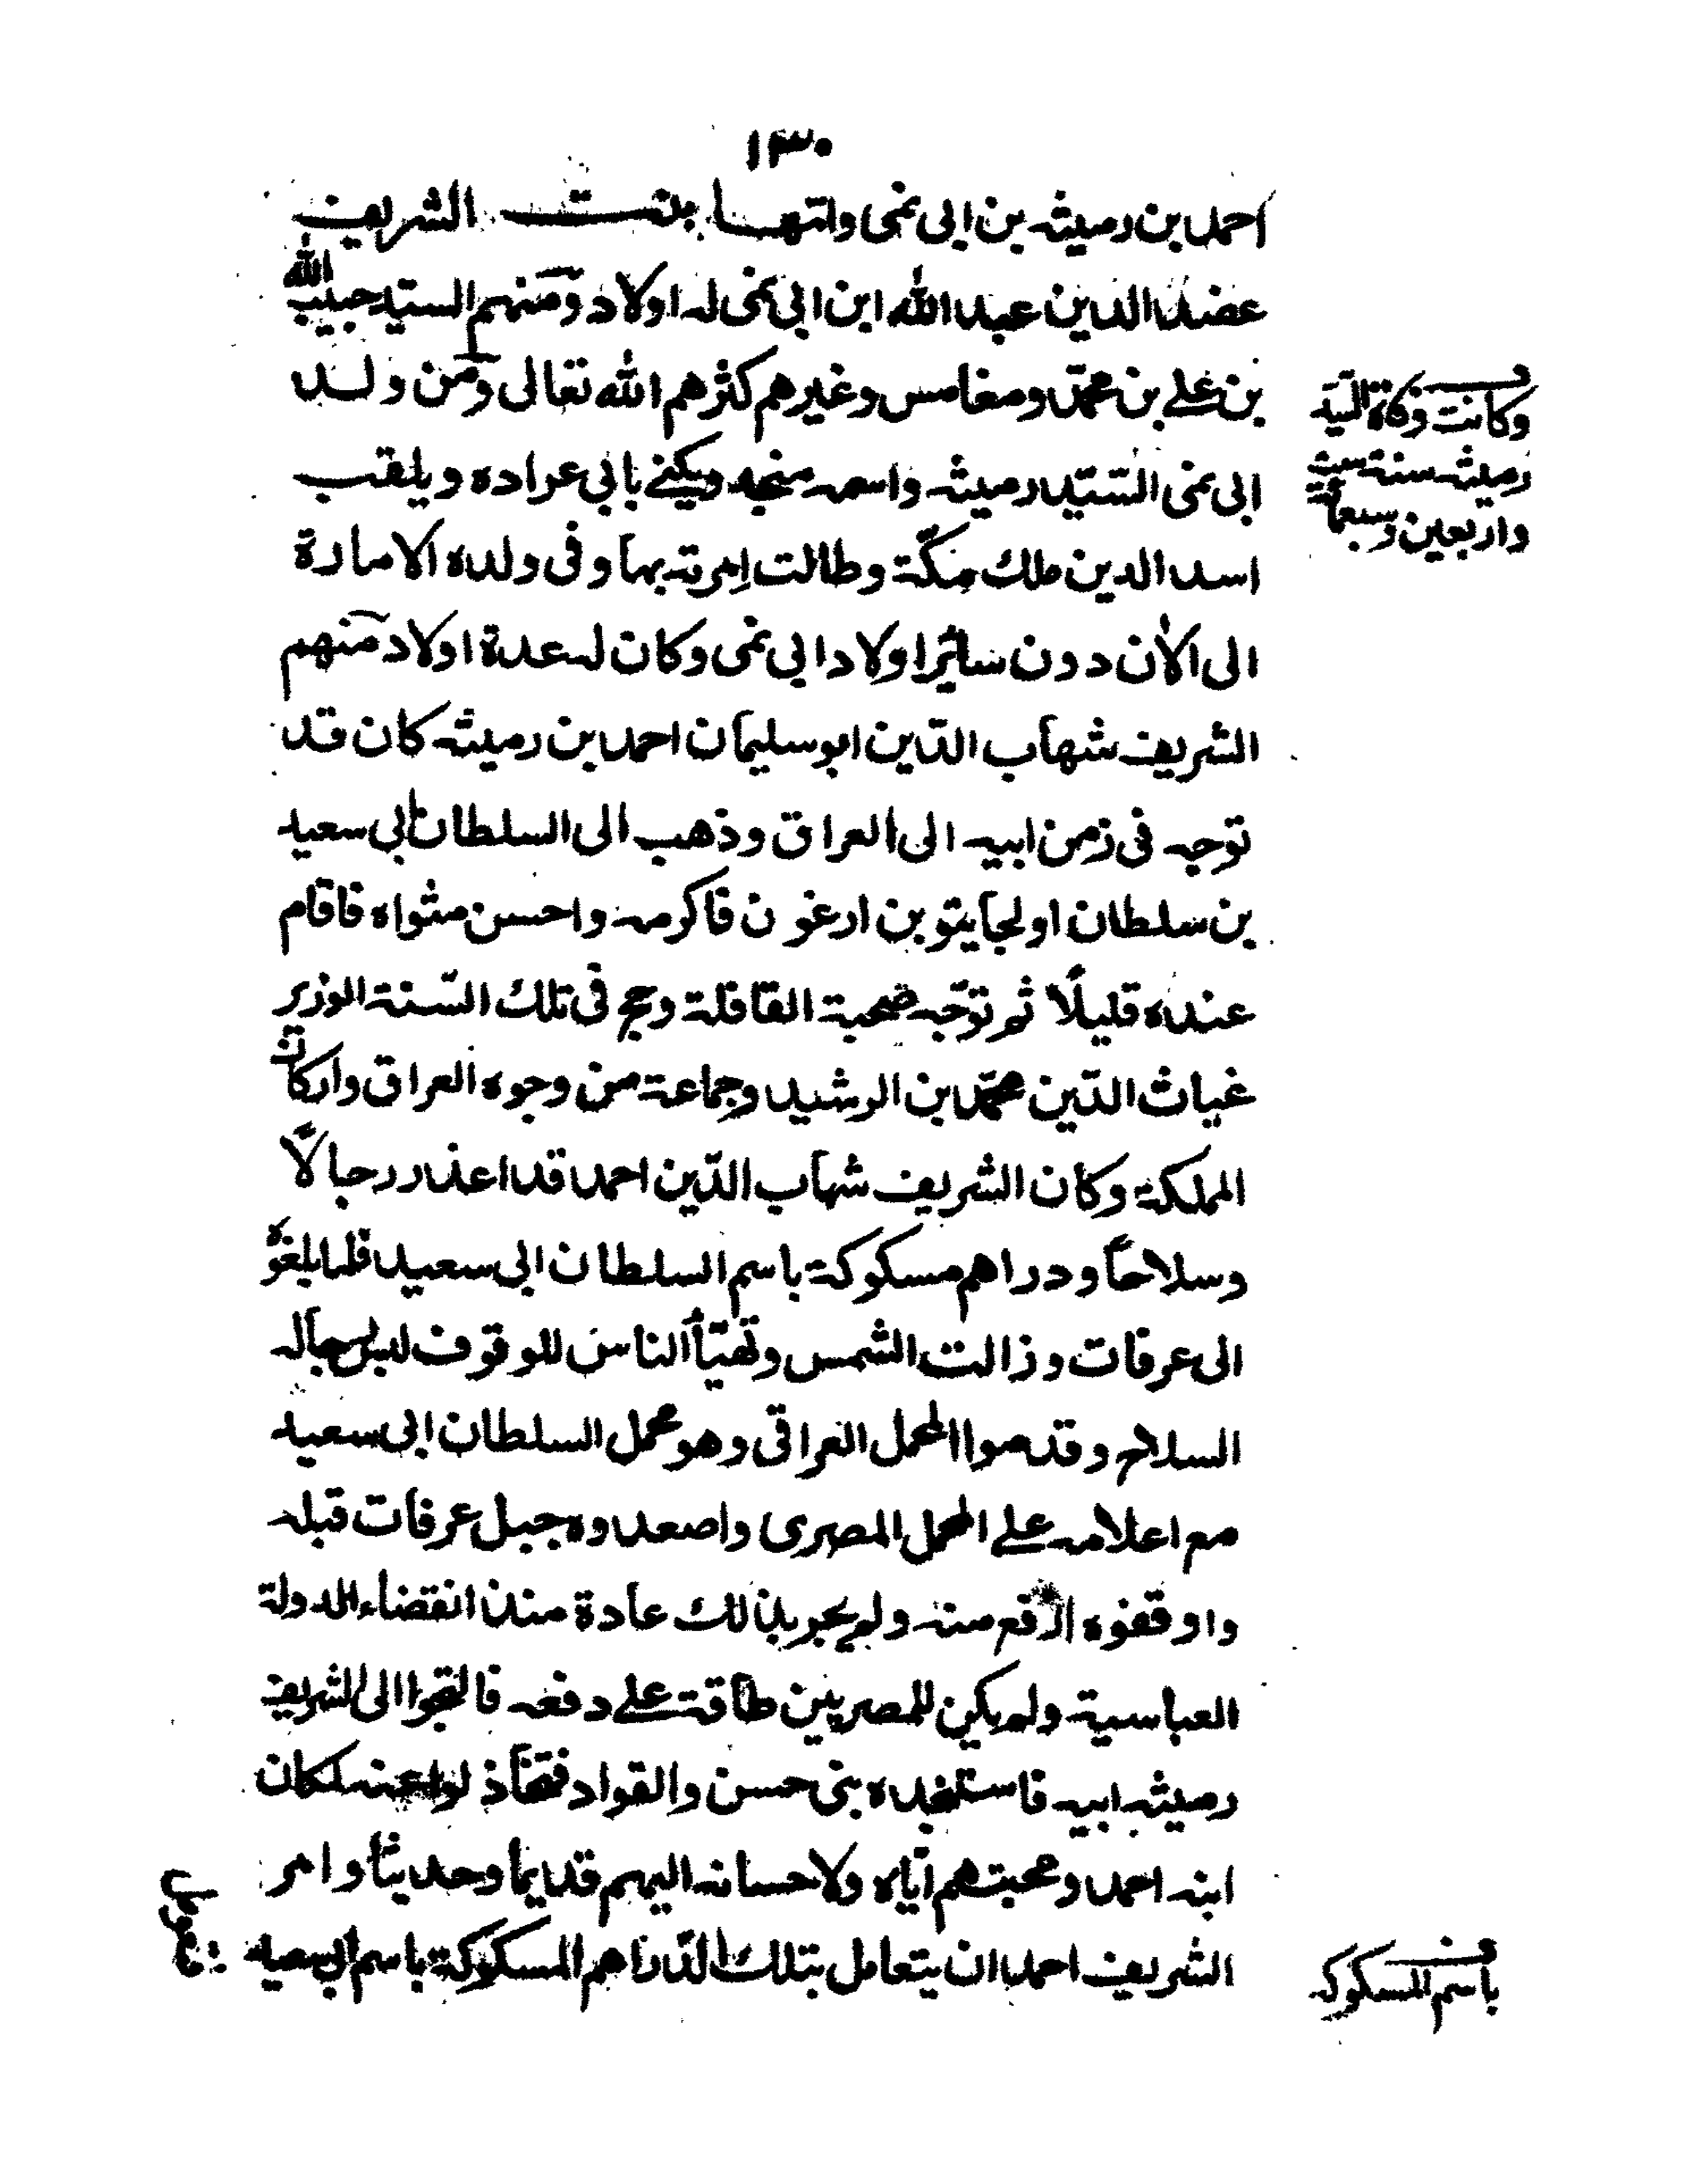 ١٣٠
احمد بن رميثه بن ابى نمى وامّهــا بنــت الشريف
عضد الدين عبد الله ابن ابى نمى له اولاد ومنهم السيّد حبيب الله
بن على بن محمّد ومغامس وغيرهم كثرهم الله تعالى ومن ولــد
ابى نمى السّيّد رميثه واسمه منجد ويكنى بابى عراده ويلقب
اسد الدين ملك مكّة وطالت إمرته بها وفى ولده الامارة
الى الآن دون سائر اولاد ابى نمى وكان له عدة اولاد منهم
الشريف شهاب الدّين ابو سليمان احمد بن رميثه كان قد
توجه فى زمن ابيه الى العراق وذهب الى السلطان ابى سعيد
بن سلطان اولجايتو بن ارغون فاكرمه واحسن مثواه فاقام
عنده قليلًا ثم توجّه صحبة القافلة وحج فى تلك السّنة الوزير
غياث الدّين محمّد بن الرشيد وجماعة من وجوه العراق واركان
المملكة وكان الشريف شهاب الدّين احمد قد اعد رجالًا
وسلاحًا ودراهم مسكوكة باسم السلطان ابى سعيد فلما بلغوه
الى عرفات وزالت الشمس وتهيّأ الناس للوقوف لبس رجاله
السلاح وقدموا المحمل العراقى وهو محمل السلطان ابى سعيد
مع اعلامه على المحمل المصرى واصعدوه جبل عرفات قبله
واوقفوه ارفع منه ولم يجر بذلك عادة منذ انقضاء الدولة
العباسية ولم يكن للمصريين طاقة على دفعه فالتجوا الى الشريف
رميثه ابيه فاستنجده بنى حسن والقواد فتخاذلوا عنه لمكان
ابنه احمد ومحبتهم ايّاه ولاحسانه اليهم قديمًا وحديثًا وامر
الشريف احمد ان يتعامل بتلك الدّراهم المسكوكة باسم ابى سعيد
وكانت وفاة السيّد
رميثه سنة ست
واربعين وسبعمائة
باسم المسكوكه